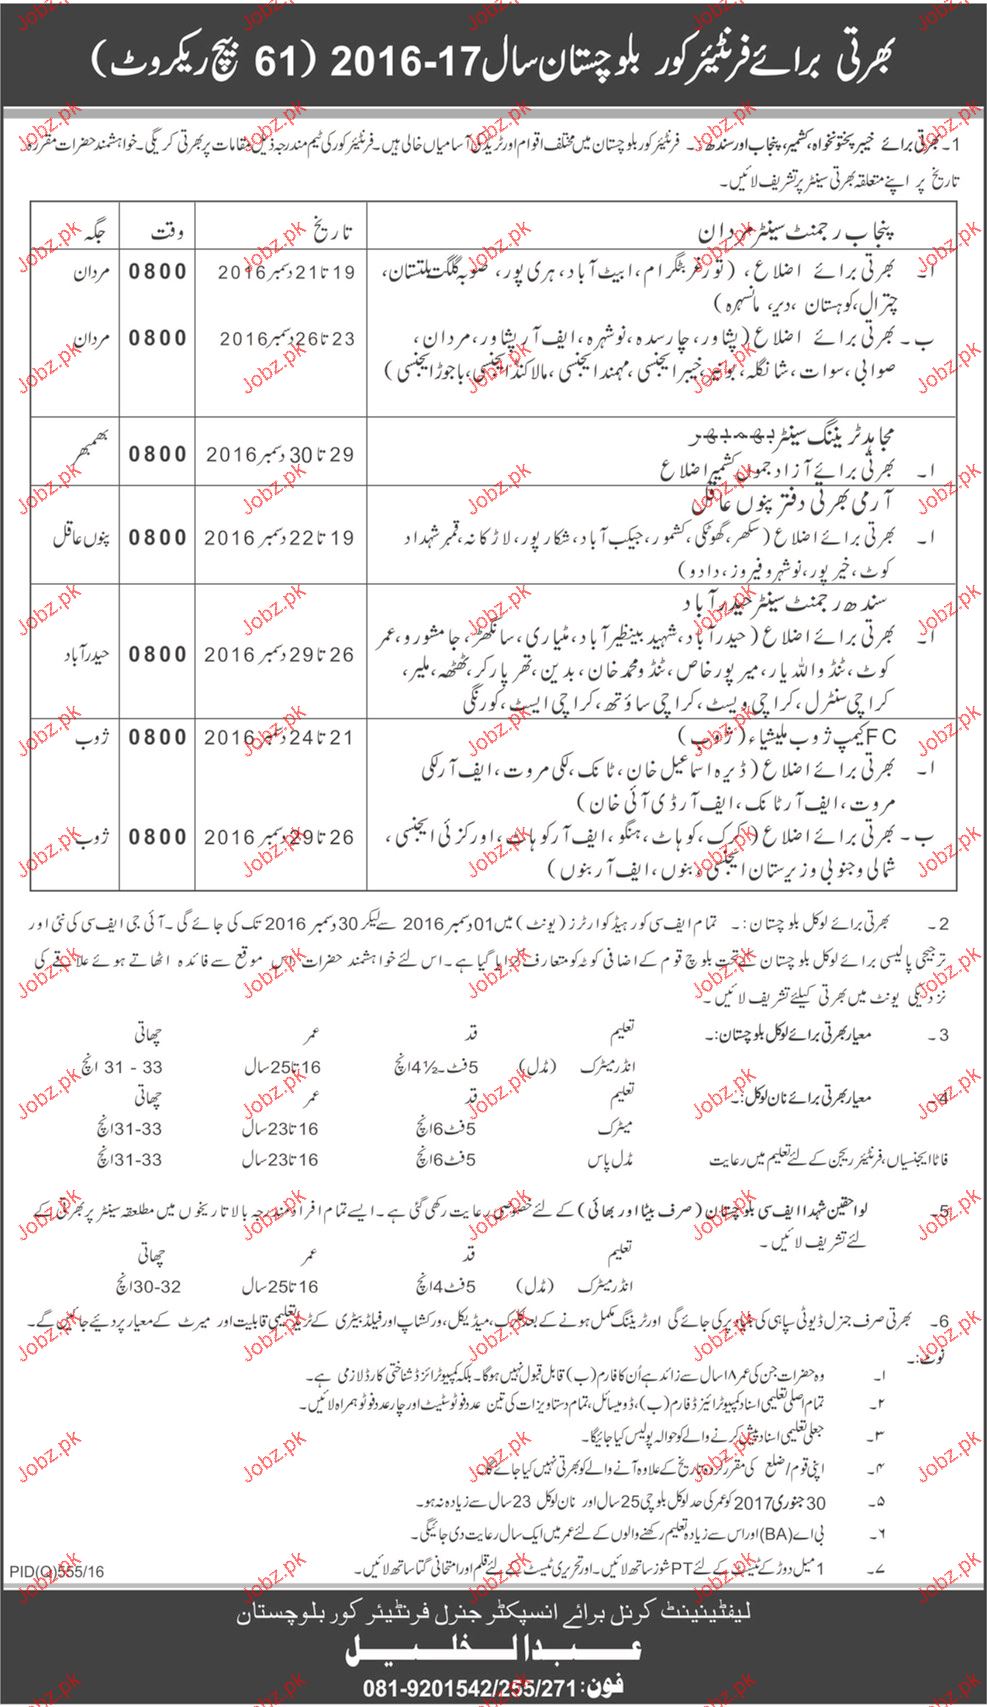 بھرتی برائے فرنٹیئر کور بلوچستان سال 17-2016 (61 بیچ ریکروٹ)
1۔ بھرتی برائے خیبر پختونخواہ، کشمیر، پنجاب اور سندھ:۔ فرنٹیئر کور بلوچستان میں مختلف اقوام اور ٹریڈ کی آسامیاں خالی ہیں۔ فرنٹیئر کور کی ٹیم مندرجہ ذیل مقامات پر بھرتی کریگی۔ خواہشمند حضرات مقررہ
تاریخ پر اپنے متعلقہ بھرتی سینٹر پر تشریف لائیں۔
پنجاب رجمنٹ سینٹر مردان تاریخ وقت جگہ
ا۔ بھرتی برائے اضلاع، (تورغر، بٹگرام، ایبٹ آباد، ہری پور، صوبہ گلگت بلتستان، 19 تا 21 دسمبر 2016 0800 مردان
چترال، کوہستان، دیر، مانسہرہ)
ب۔ بھرتی برائے اضلاع (پشاور، چارسدہ، نوشہرہ، ایف آر پشاور، مردان، 23 تا 26 دسمبر 2016 0800 مردان
صوابی، سوات، شانگلہ، بونیر، خیبر ایجنسی، مہمند ایجنسی، مالاکنڈ ایجنسی، باجوڑ ایجنسی)
مجاہد ٹریننگ سینٹر بھمبھر
ا۔ بھرتی برائے آزاد جموں کشمیر اضلاع 29 تا 30 دسمبر 2016 0800 بھمبھر
آرمی بھرتی دفتر پنوں عاقل
ا۔ بھرتی برائے اضلاع (سکھر، گھوٹکی، کشمور، جیکب آباد، شکارپور، لاڑکانہ، قمبر شہداد 19 تا 22 دسمبر 2016 0800 پنوں عاقل
کوٹ، خیرپور، نوشہرو فیروز، دادو)
سندھ رجمنٹ سینٹر حیدر آباد
ا۔ بھرتی برائے اضلاع (حیدر آباد، شہید بینظیر آباد، مٹیاری، سانگھڑ، جامشورو، عمر
کوٹ، ٹنڈو اللہ یار، میرپور خاص، ٹنڈو محمد خان، بدین، تھرپارکر، ٹھٹھہ، ملیر، 26 تا 29 دسمبر 2016 0800 حیدر آباد
کراچی سنٹرل، کراچی ویسٹ، کراچی ساؤتھ، کراچی ایسٹ، کورنگی
FC کیمپ ژوب ملیشیاء (ژوب) 21 تا 24 دسمبر 2016 0800 ژوب
ا۔ بھرتی برائے اضلاع (ڈیرہ اسماعیل خان، ٹانک، لکی مروت، ایف آر لکی
مروت، ایف آر ٹانک، ایف آر ڈی آئی خان)
ب۔ بھرتی برائے اضلاع (کرک، کوہاٹ، ہنگو، ایف آر کوہاٹ، اورکزئی ایجنسی، 26 تا 29 دسمبر 2016 0800 ژوب
شمالی و جنوبی وزیرستان ایجنسی، بنوں، ایف آر بنوں)
2۔ بھرتی برائے لوکل بلوچستان:۔ تمام ایف سی کور ہیڈ کوارٹرز (یونٹ) میں 01 دسمبر 2016 سے لیکر 30 دسمبر 2016 تک کی جائے گی۔ آئی جی ایف سی کی نئی اور
ترجیحی پالیسی برائے لوکل بلوچستان کے تحت بلوچ قوم کے اضافی کوٹہ کو متعارف کرایا گیا ہے۔ اس لئے خواہشمند حضرات اس موقع سے فائدہ اٹھاتے ہوئے علاقے کی
نزدیکی یونٹ میں بھرتی کیلئے تشریف لائیں۔
3۔ معیار بھرتی برائے لوکل بلوچستان:۔ تعلیم قد عمر چھاتی
انڈر میٹرک (مڈل) 5 فٹ۔ 4½ انچ 16 تا 25 سال 33 - 31 انچ
4۔ معیار بھرتی برائے نان لوکل:۔ تعلیم قد عمر چھاتی
میٹرک 5 فٹ 6 انچ 16 تا 23 سال 31-33 انچ
فاٹا ایجنسیاں، فرنٹیئر ریجن کے لئے تعلیم میں رعایت مڈل پاس 5 فٹ 6 انچ 16 تا 23 سال 31-33 انچ
5۔ لواحقین شہدا ایف سی بلوچستان (صرف بیٹا اور بھائی) کے لئے خصوصی رعایت رکھی گئی ہے۔ ایسے تمام افراد مندرجہ بالا تاریخوں میں مطلعقہ سینٹر پر بھرتی کے
لئے تشریف لائیں۔
تعلیم قد عمر چھاتی
انڈر میٹرک (مڈل) 5 فٹ 4 انچ 16 تا 25 سال 30-32 انچ
6۔ بھرتی صرف جنرل ڈیوٹی سپاہی کی بنیاد پر کی جائے گی اور ٹریننگ مکمل ہونے کے بعد کلرک، میڈیکل، ورکشاپ اور فیلڈ بیٹری کے ٹریڈ تعلیمی قابلیت اور میرٹ کے معیار پر دیئے جائیں گے۔
نوٹ:۔
۱۔ وہ حضرات جن کی عمر ۱۸ سال سے زائد ہے اُن کا فارم (ب) قابل قبول نہیں ہوگا۔ بلکہ کمپیوٹرائزڈ شناختی کارڈ لازمی ہے۔
۲۔ تمام اصلی تعلیمی اسناد کمپیوٹرائیزڈ فارم (ب)، ڈومیسائل، تمام دستاویزات کی تین عدد فوٹو سٹیٹ اور چار عدد فوٹو ہمراہ لائیں۔
۳۔ جعلی تعلیمی اسناد پیش کرنے والے کو حوالہ پولیس کیا جائیگا۔
۴۔ اپنی قوم/ضلع کی مقرر کردہ تاریخ کے علاوہ آنے والے کو بھرتی نہیں کیا جائے گا۔
۵۔ 30 جنوری 2017 کو عمر کی حد لوکل بلوچی 25 سال اور نان لوکل 23 سال سے زیادہ نہ ہو۔
۶۔ بی اے (BA) اور اس سے زیادہ تعلیم رکھنے والوں کے لئے عمر میں ایک سال رعایت دی جائیگی۔
۷۔ 1 میل دوڑ کے ٹیسٹ کے لئے PT شوز ساتھ لائیں۔ اور تحریری ٹیسٹ کے لئے قلم اور امتحانی گتا ساتھ لائیں۔
PID(Q)555/16
لیفٹیننٹ کرنل برائے انسپکٹر جنرل فرنٹیئر کور بلوچستان
عبدالخلیل
فون: 081-9201542/255/271
Jobz.pk